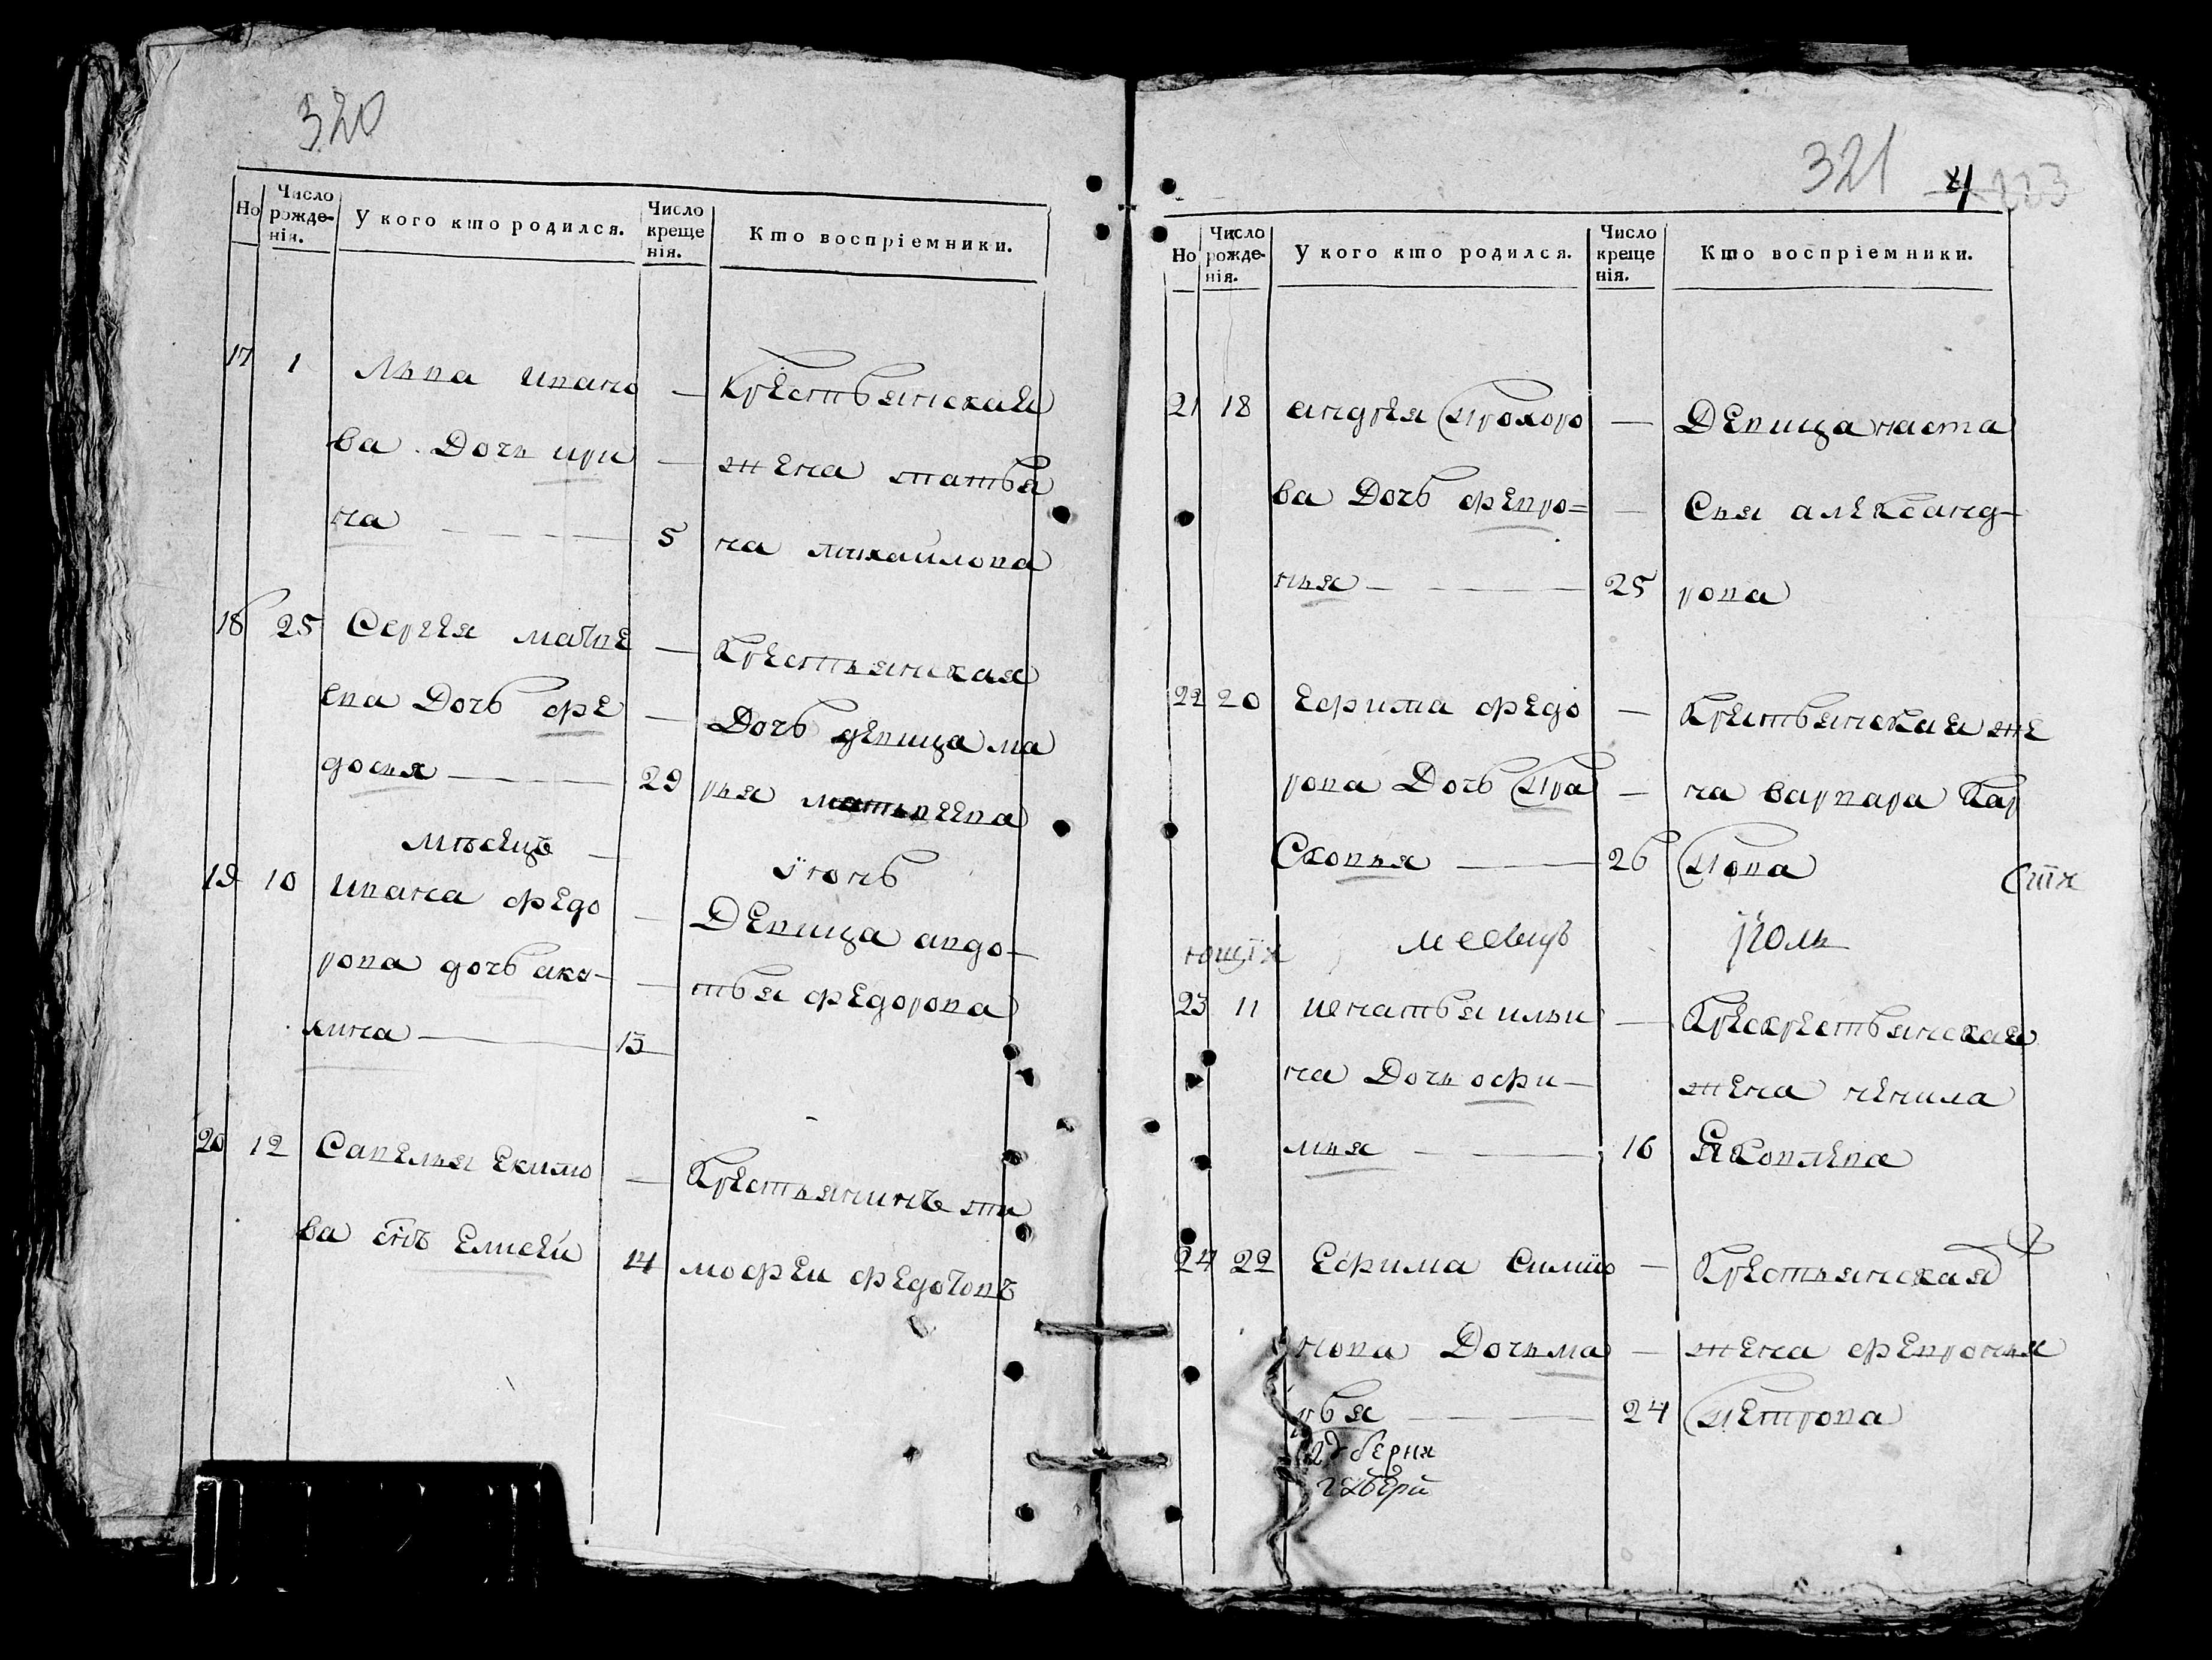 320
Но
Число рожденія.
У кого кто родился.
Число крещенія.
Кто воспріемники.
17 1 Льва Ивано — Крестьянская
ва Дочь ири — жена татья
на — 5 на михайлова
18 25 Сергея матве — Крестьянская
ева Дочь фе — Дочь девица ма
досья — 29 рья матьвеева
мѣсецъ — іюнь
19 10 ивана федо — Девица авдо—
рова дочь аку— — тья федорова
лина — 13
20 12 Савелья екимо — Крестьянинъ ти
ва снъ елисей 14 мофеи федотовъ
321 4 223
Но
Число рожденія.
У кого кто родился.
Число крещенія.
Кто воспріемники.
21 18 андрея прохоро — Девица наста
ва Дочь февро= — Сья александ—
нья — 25 рова
22 20 ефима федо — Крестьянская же
рова Дочь пра — на варвара кар
Сковья — 26 пова
месецъ іюль
23 11 игнатья ильи — Крескрестьянская
на Дочь офи— жена ненила
мья — 16 Яковлева
24 22 Ефима Симио — Крестьянская
нова Дочь ма — жена февронья
рья — 24 петрова
губерня
губерн